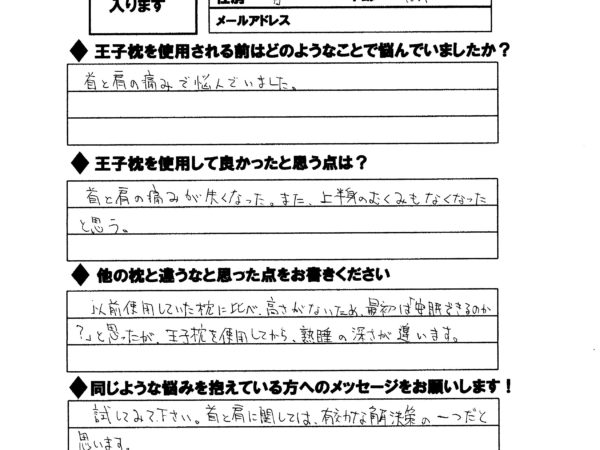 入ります
メールアドレス
◆ 王子枕を使用される前はどのようなことで悩んでいましたか？
首と肩の痛みで悩んでいました。
◆ 王子枕を使用して良かったと思う点は？
首と肩の痛みが失くなった。また、上半身のむくみもなくなった
と思う。
◆ 他の枕と違うなと思った点をお書きください
以前使用していた枕に比べ、高さがないため、最初は「安眠できるのか
？」と思ったが、王子枕を使用してから、熟睡の深さが違います。
◆ 同じような悩みを抱えている方へのメッセージをお願いします！
試してみて下さい。首と肩に関しては、有効な解決策の一つだと
思います。